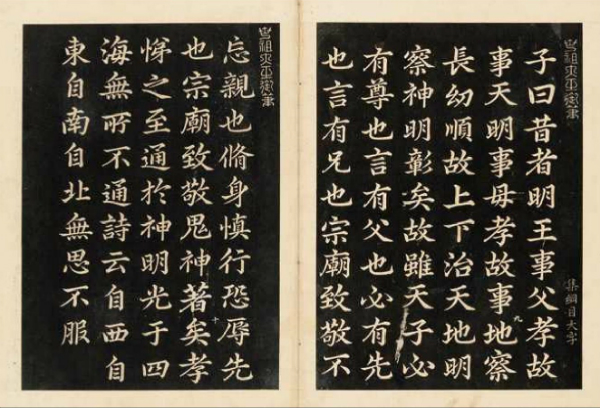 集綱目大字
子曰昔者明王事父孝故
九
事天明事母孝故事地察
長幼順故上下治天地明
察神明彰矣故雖天子必
有尊也言有父也必有先
也言有兄也宗廟致敬不
忘親也脩身慎行恐辱先
十
也宗廟致敬鬼神著矣孝
悌之至通於神明光于四
海無所不通詩云自西自
東自南自北無思不服